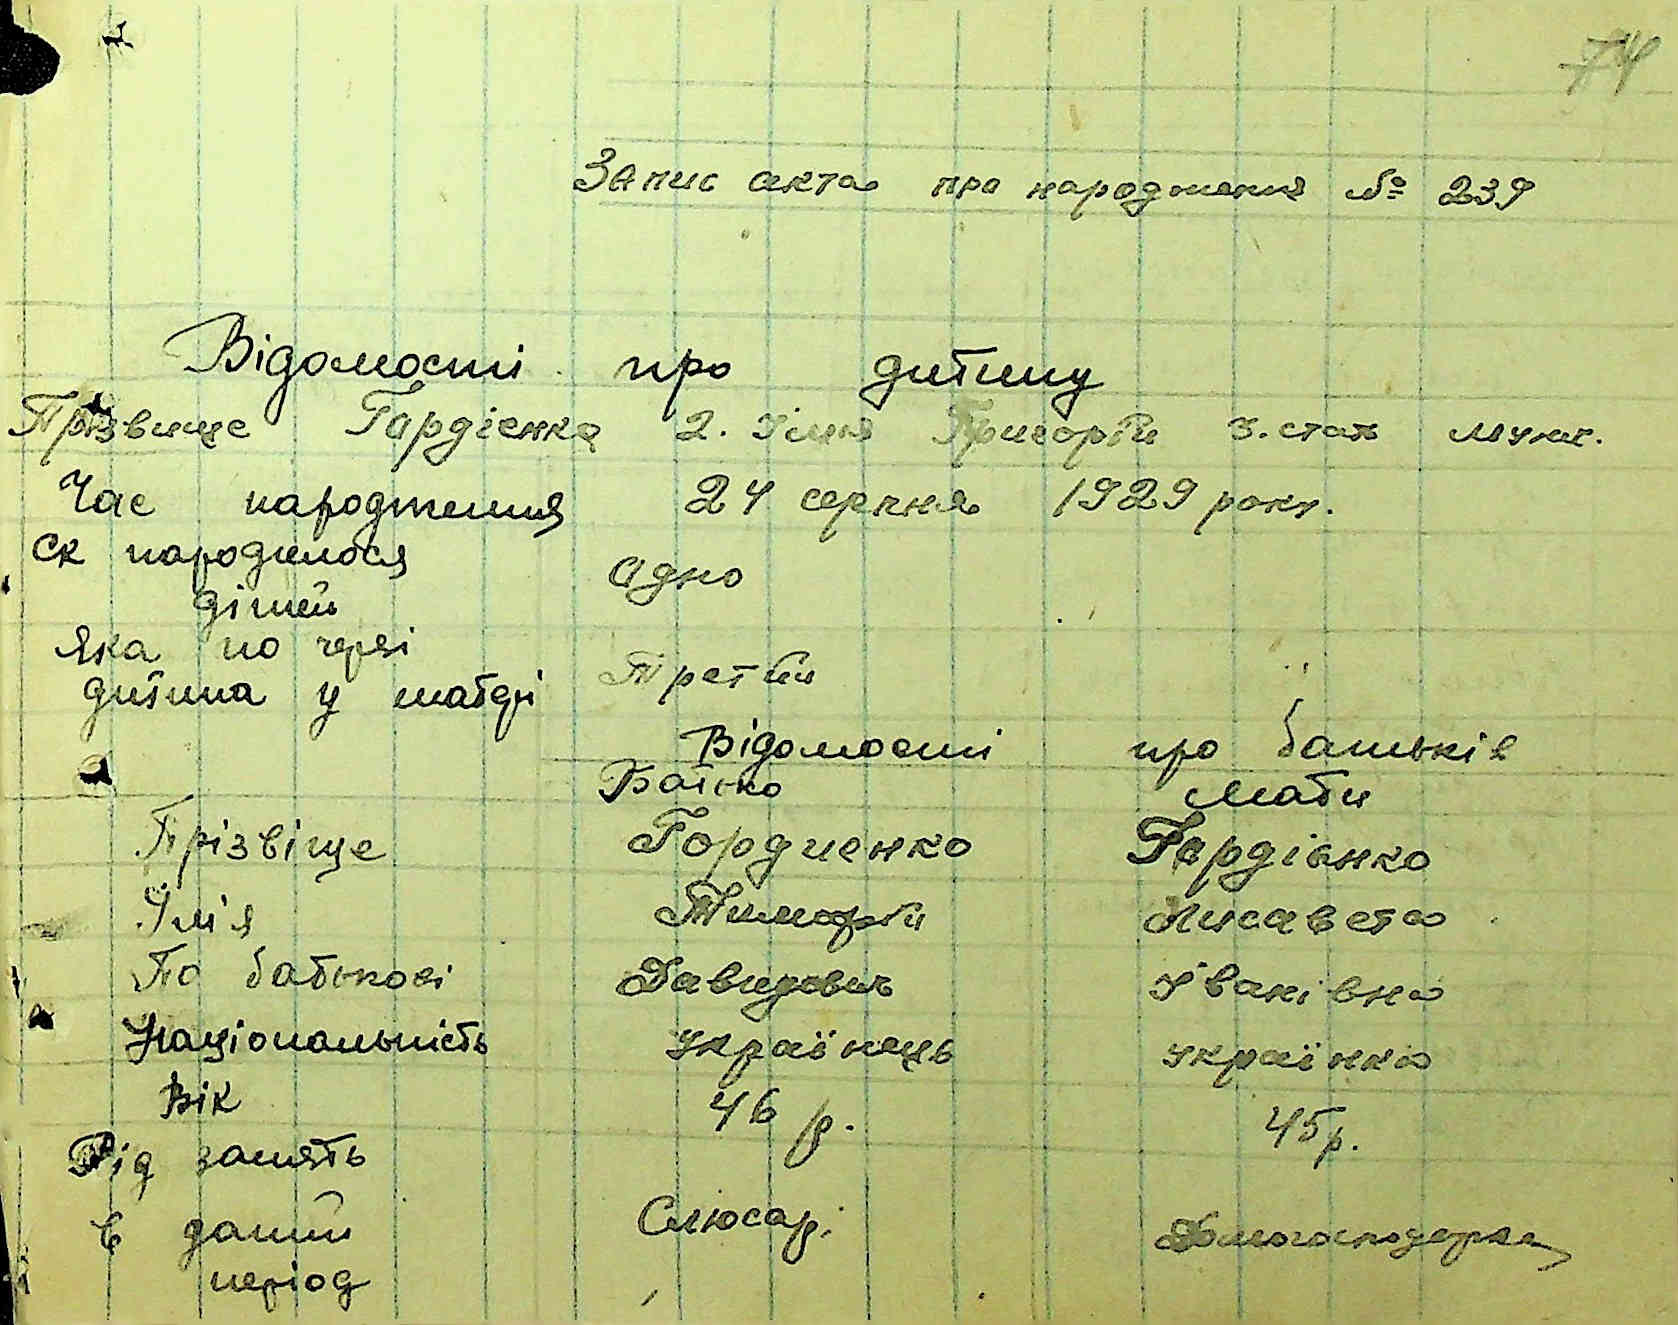 74
Запис акта про народження № 239
Відомості про дитину
Прізвище Гордієнко 2. Імя Григорій 3. стать муж.
Час народження 24 серпня 1929 року.
Ск народилося Одно
дітей
Яка по черзі
дитина у матері Третій
Відомості про батьків
Батько Мати
Прізвіще Гордиенко Гордієнко
Імія Тимофій Лисавета
По батькові Давидович Іванівна
Національність Українець Українка
Вік 46 р. 45 р.
Рід занять
в даний Слюсарь Домогосподарка
період